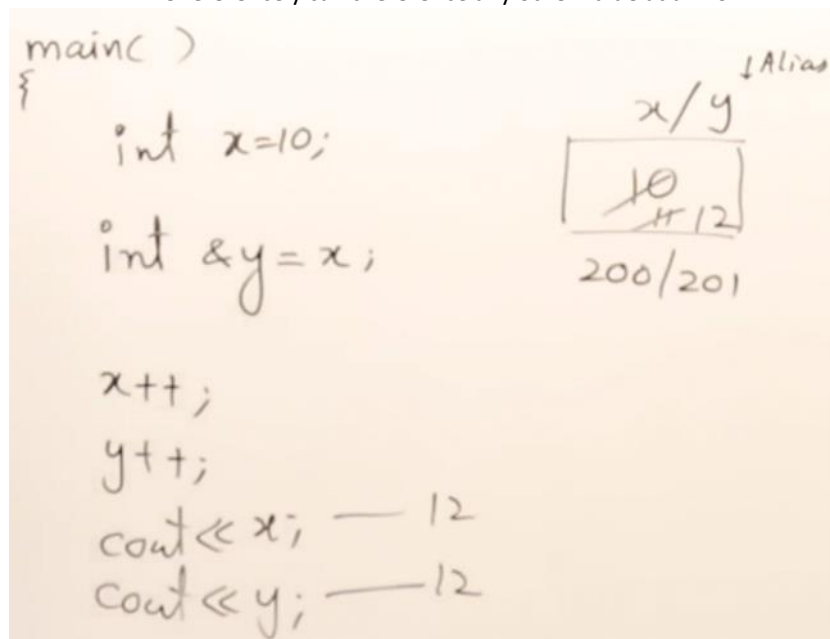 main( )
{
int x=10;
int &y=x;
x++;
y++;
cout<<x; — 12
cout<<y; — 12
↓Alias
x/y
10
11 12
200/201